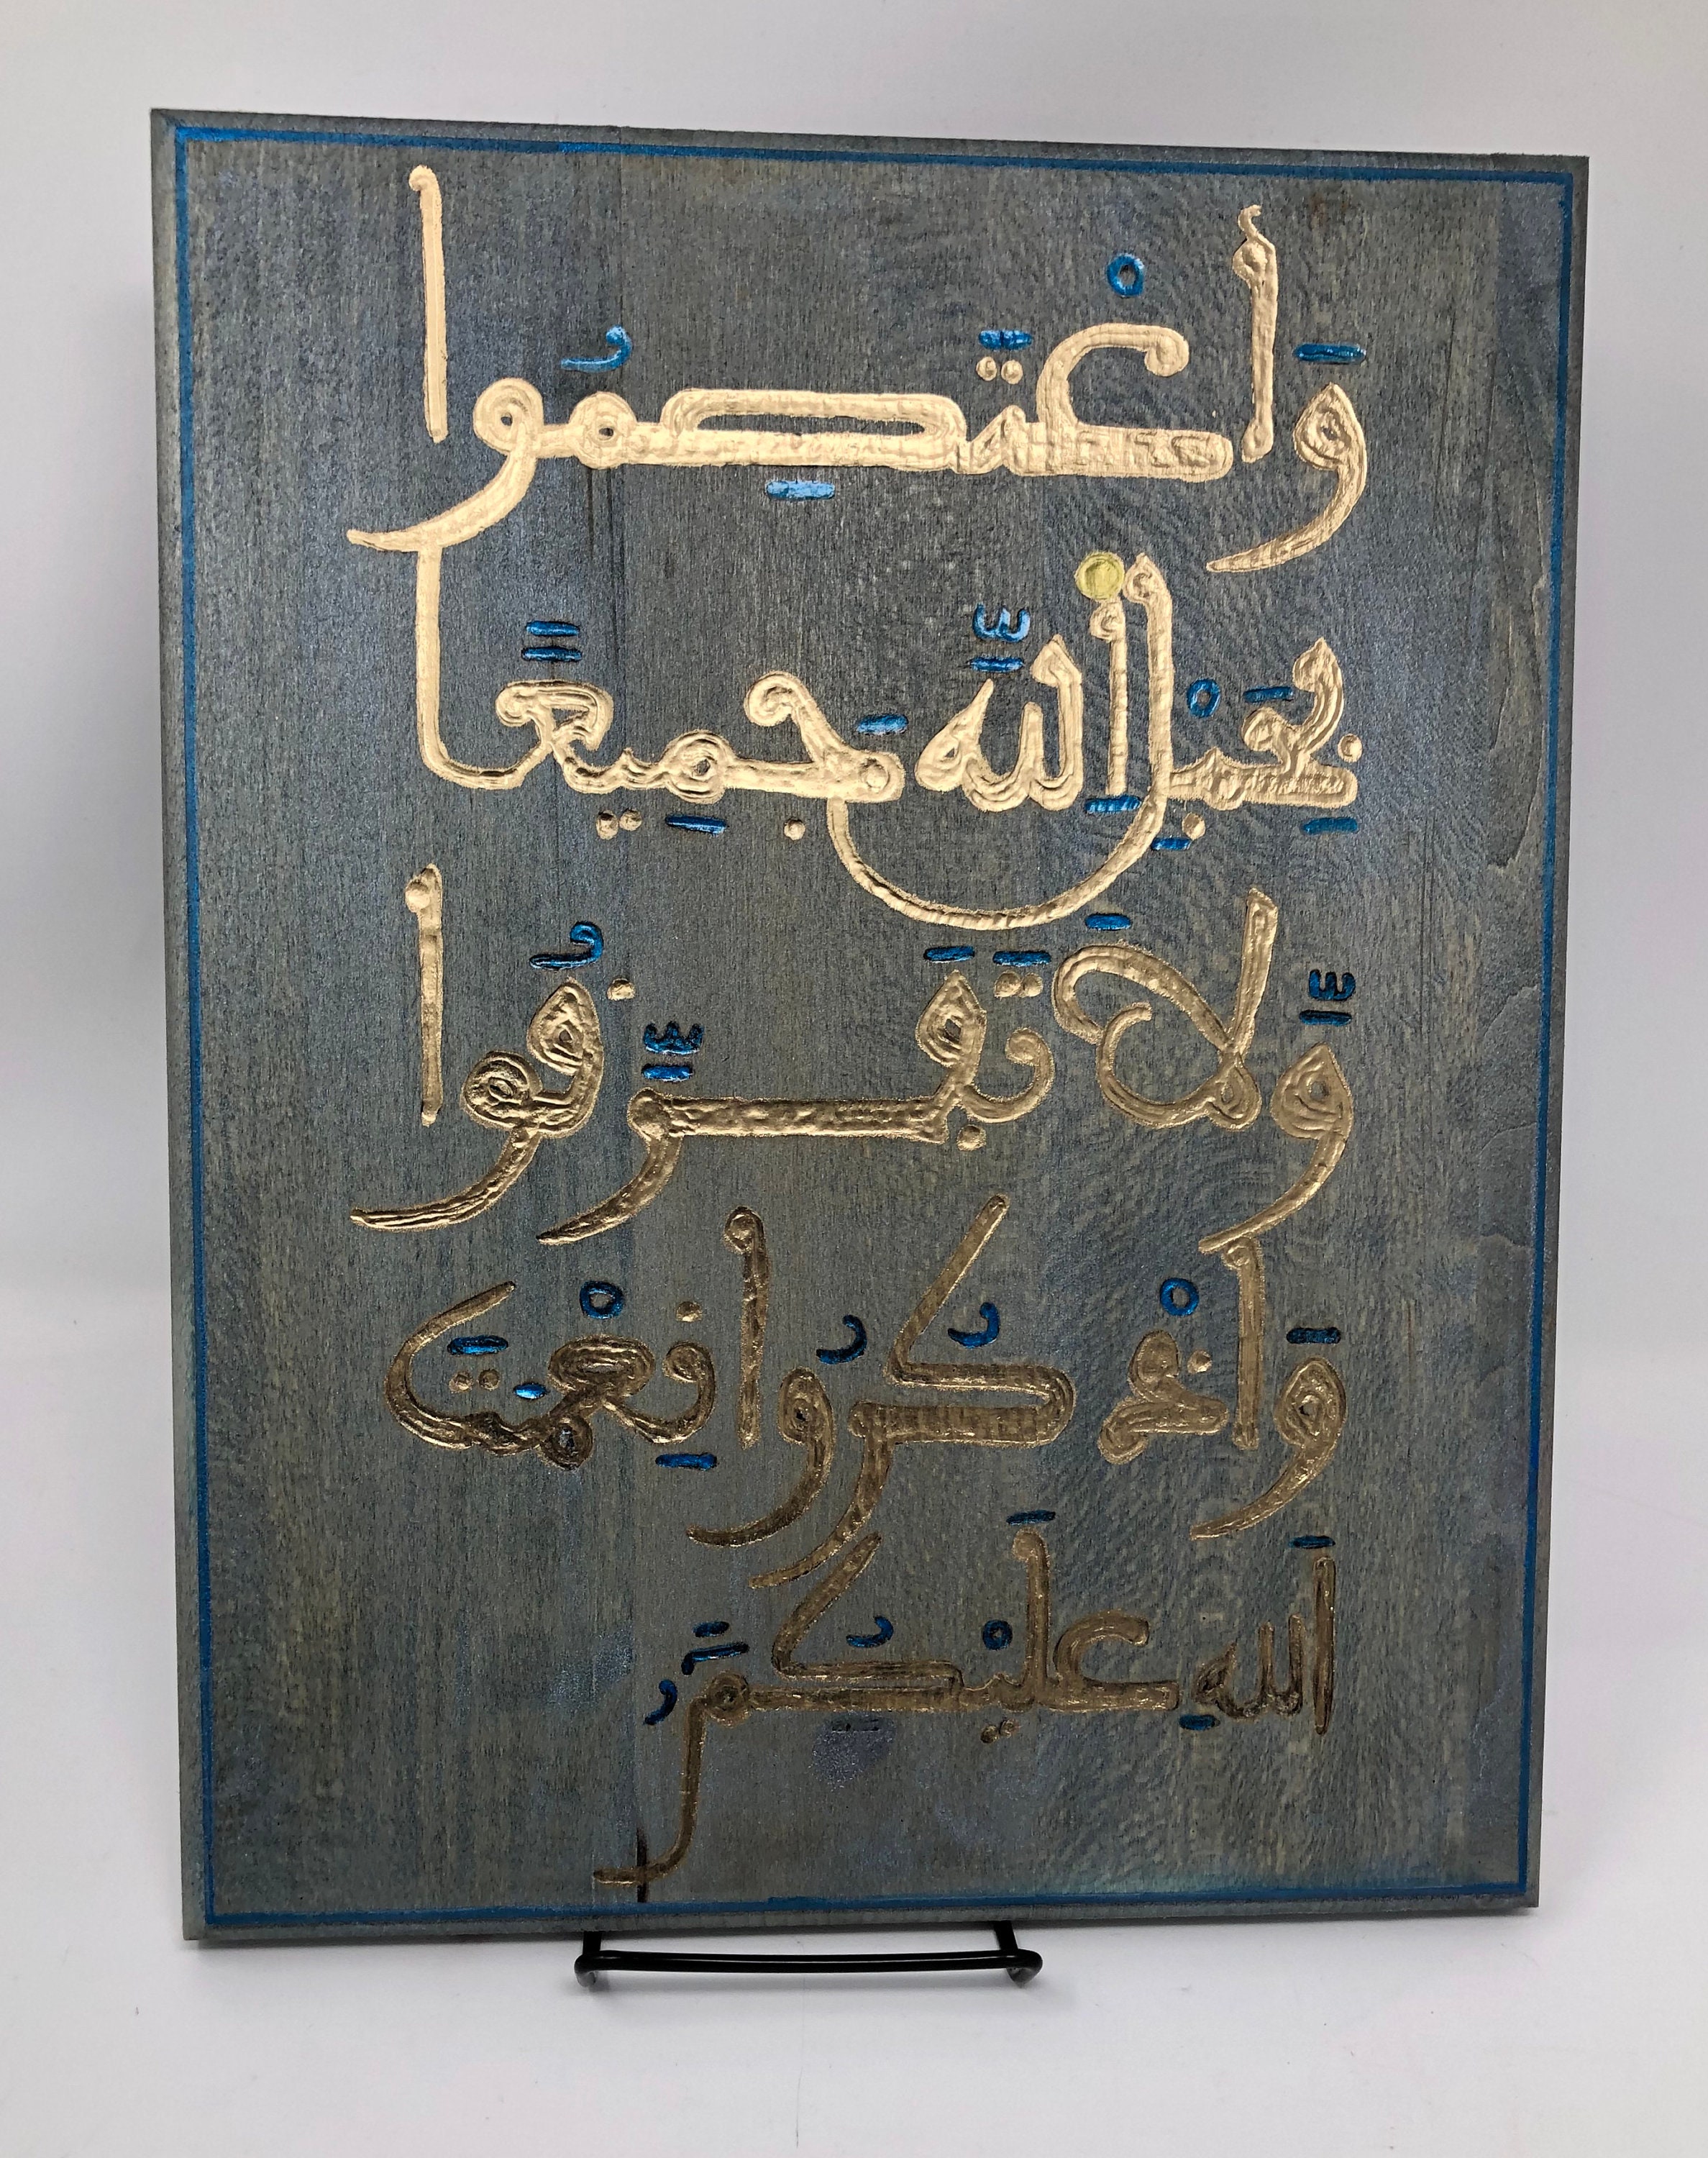 وَاعْتَصِمُوا
بِحَبْلِ اللَّهِ جَمِيعًا
وَّلَا تَفَرَّقُوا
وَاذْكُرُوا نِعْمَتَ
اللَّهِ عَلَيْكُمْ